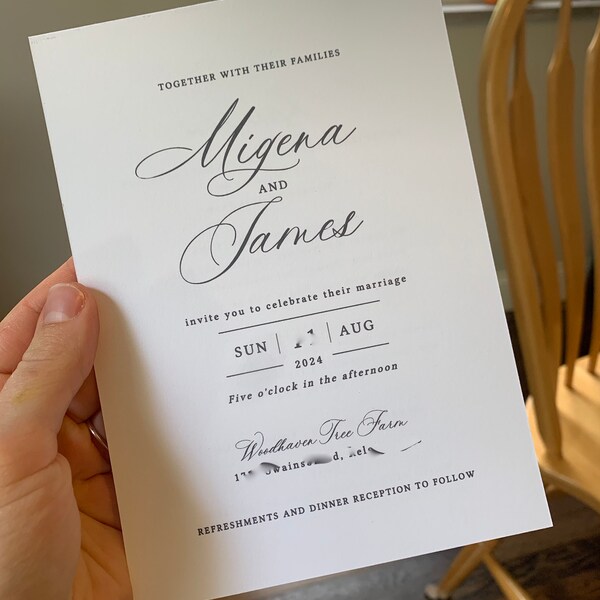 TOGETHER WITH THEIR FAMILIES
Migena
AND
James
invite you to celebrate their marriage
SUN | | AUG
2024
Five o'clock in the afternoon
Woodhaven Tree Farm
REFRESHMENTS AND DINNER RECEPTION TO FOLLOW